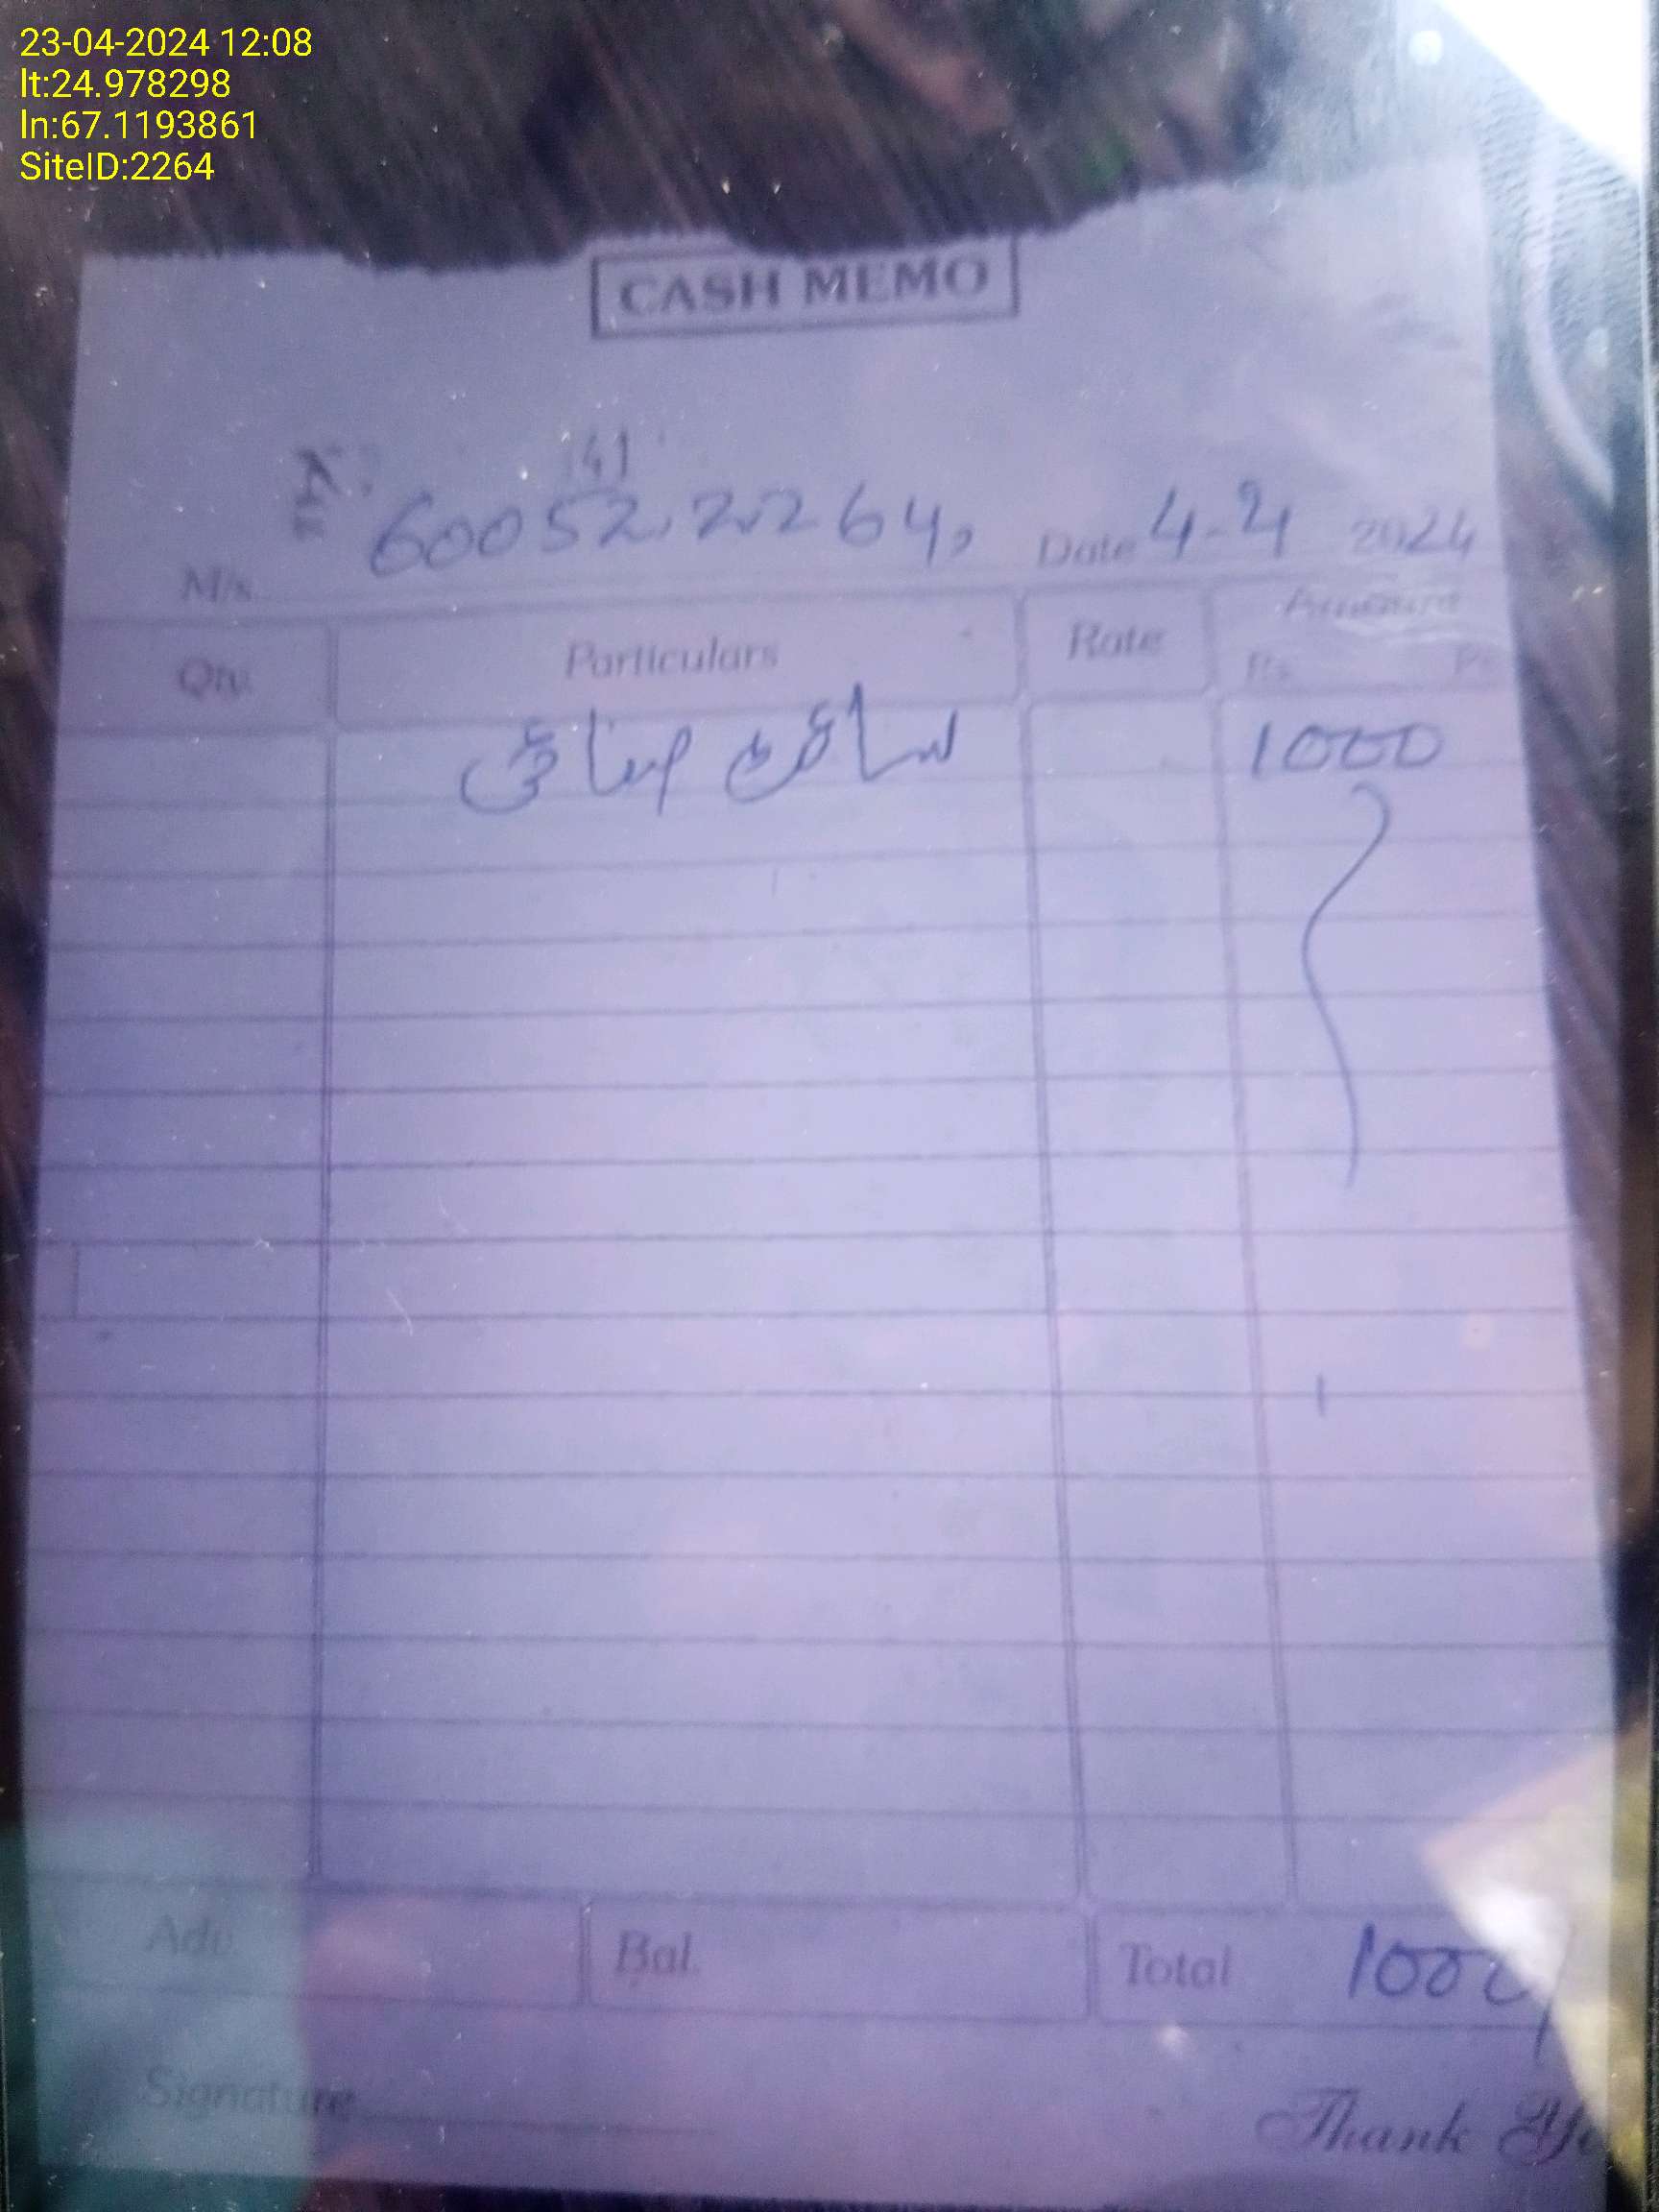 23-04-2024 12:08
lt:24.978298
ln:67.1193861
SiteID:2264
CASH MEMO
60052, 2264,
Date 4-4 2024
M/s.
Qty. Particulars Rate Amount
Rs. Ps.
سائٹ صفائی 1000
Adv. Bal. Total 1000/
Signature
Thank Yo